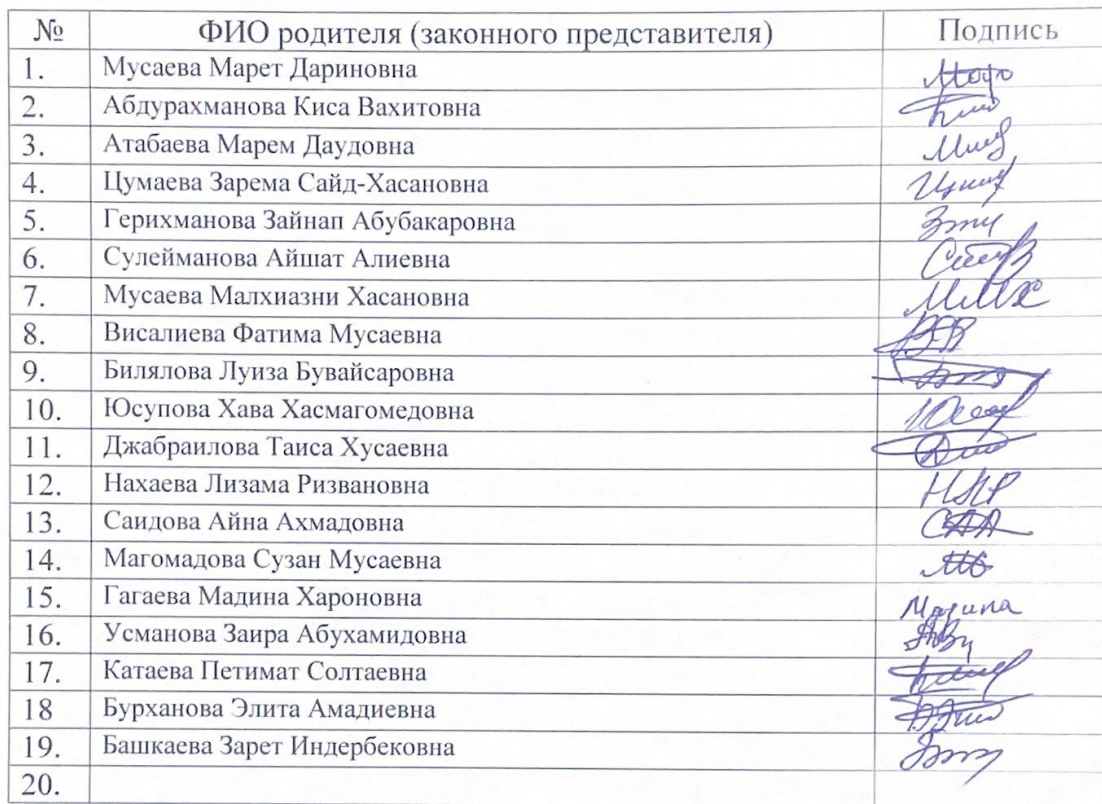 № ФИО родителя (законного представителя) Подпись
1. Мусаева Марет Дариновна
2. Абдурахманова Киса Вахитовна
3. Атабаева Марем Даудовна
4. Цумаева Зарема Сайд-Хасановна
5. Герихманова Зайнап Абубакаровна
6. Сулейманова Айшат Алиевна
7. Мусаева Малхиазни Хасановна ММХ
8. Висалиева Фатима Мусаевна
9. Билялова Луиза Бувайсаровна
10. Юсупова Хава Хасмагомедовна
11. Джабраилова Таиса Хусаевна
12. Нахаева Лизама Ризвановна НЛР
13. Саидова Айна Ахмадовна САА
14. Магомадова Сузан Мусаевна
15. Гагаева Мадина Хароновна Мадина
16. Усманова Заира Абухамидовна
17. Катаева Петимат Солтаевна
18 Бурханова Элита Амадиевна
19. Башкаева Зарет Индербековна
20.